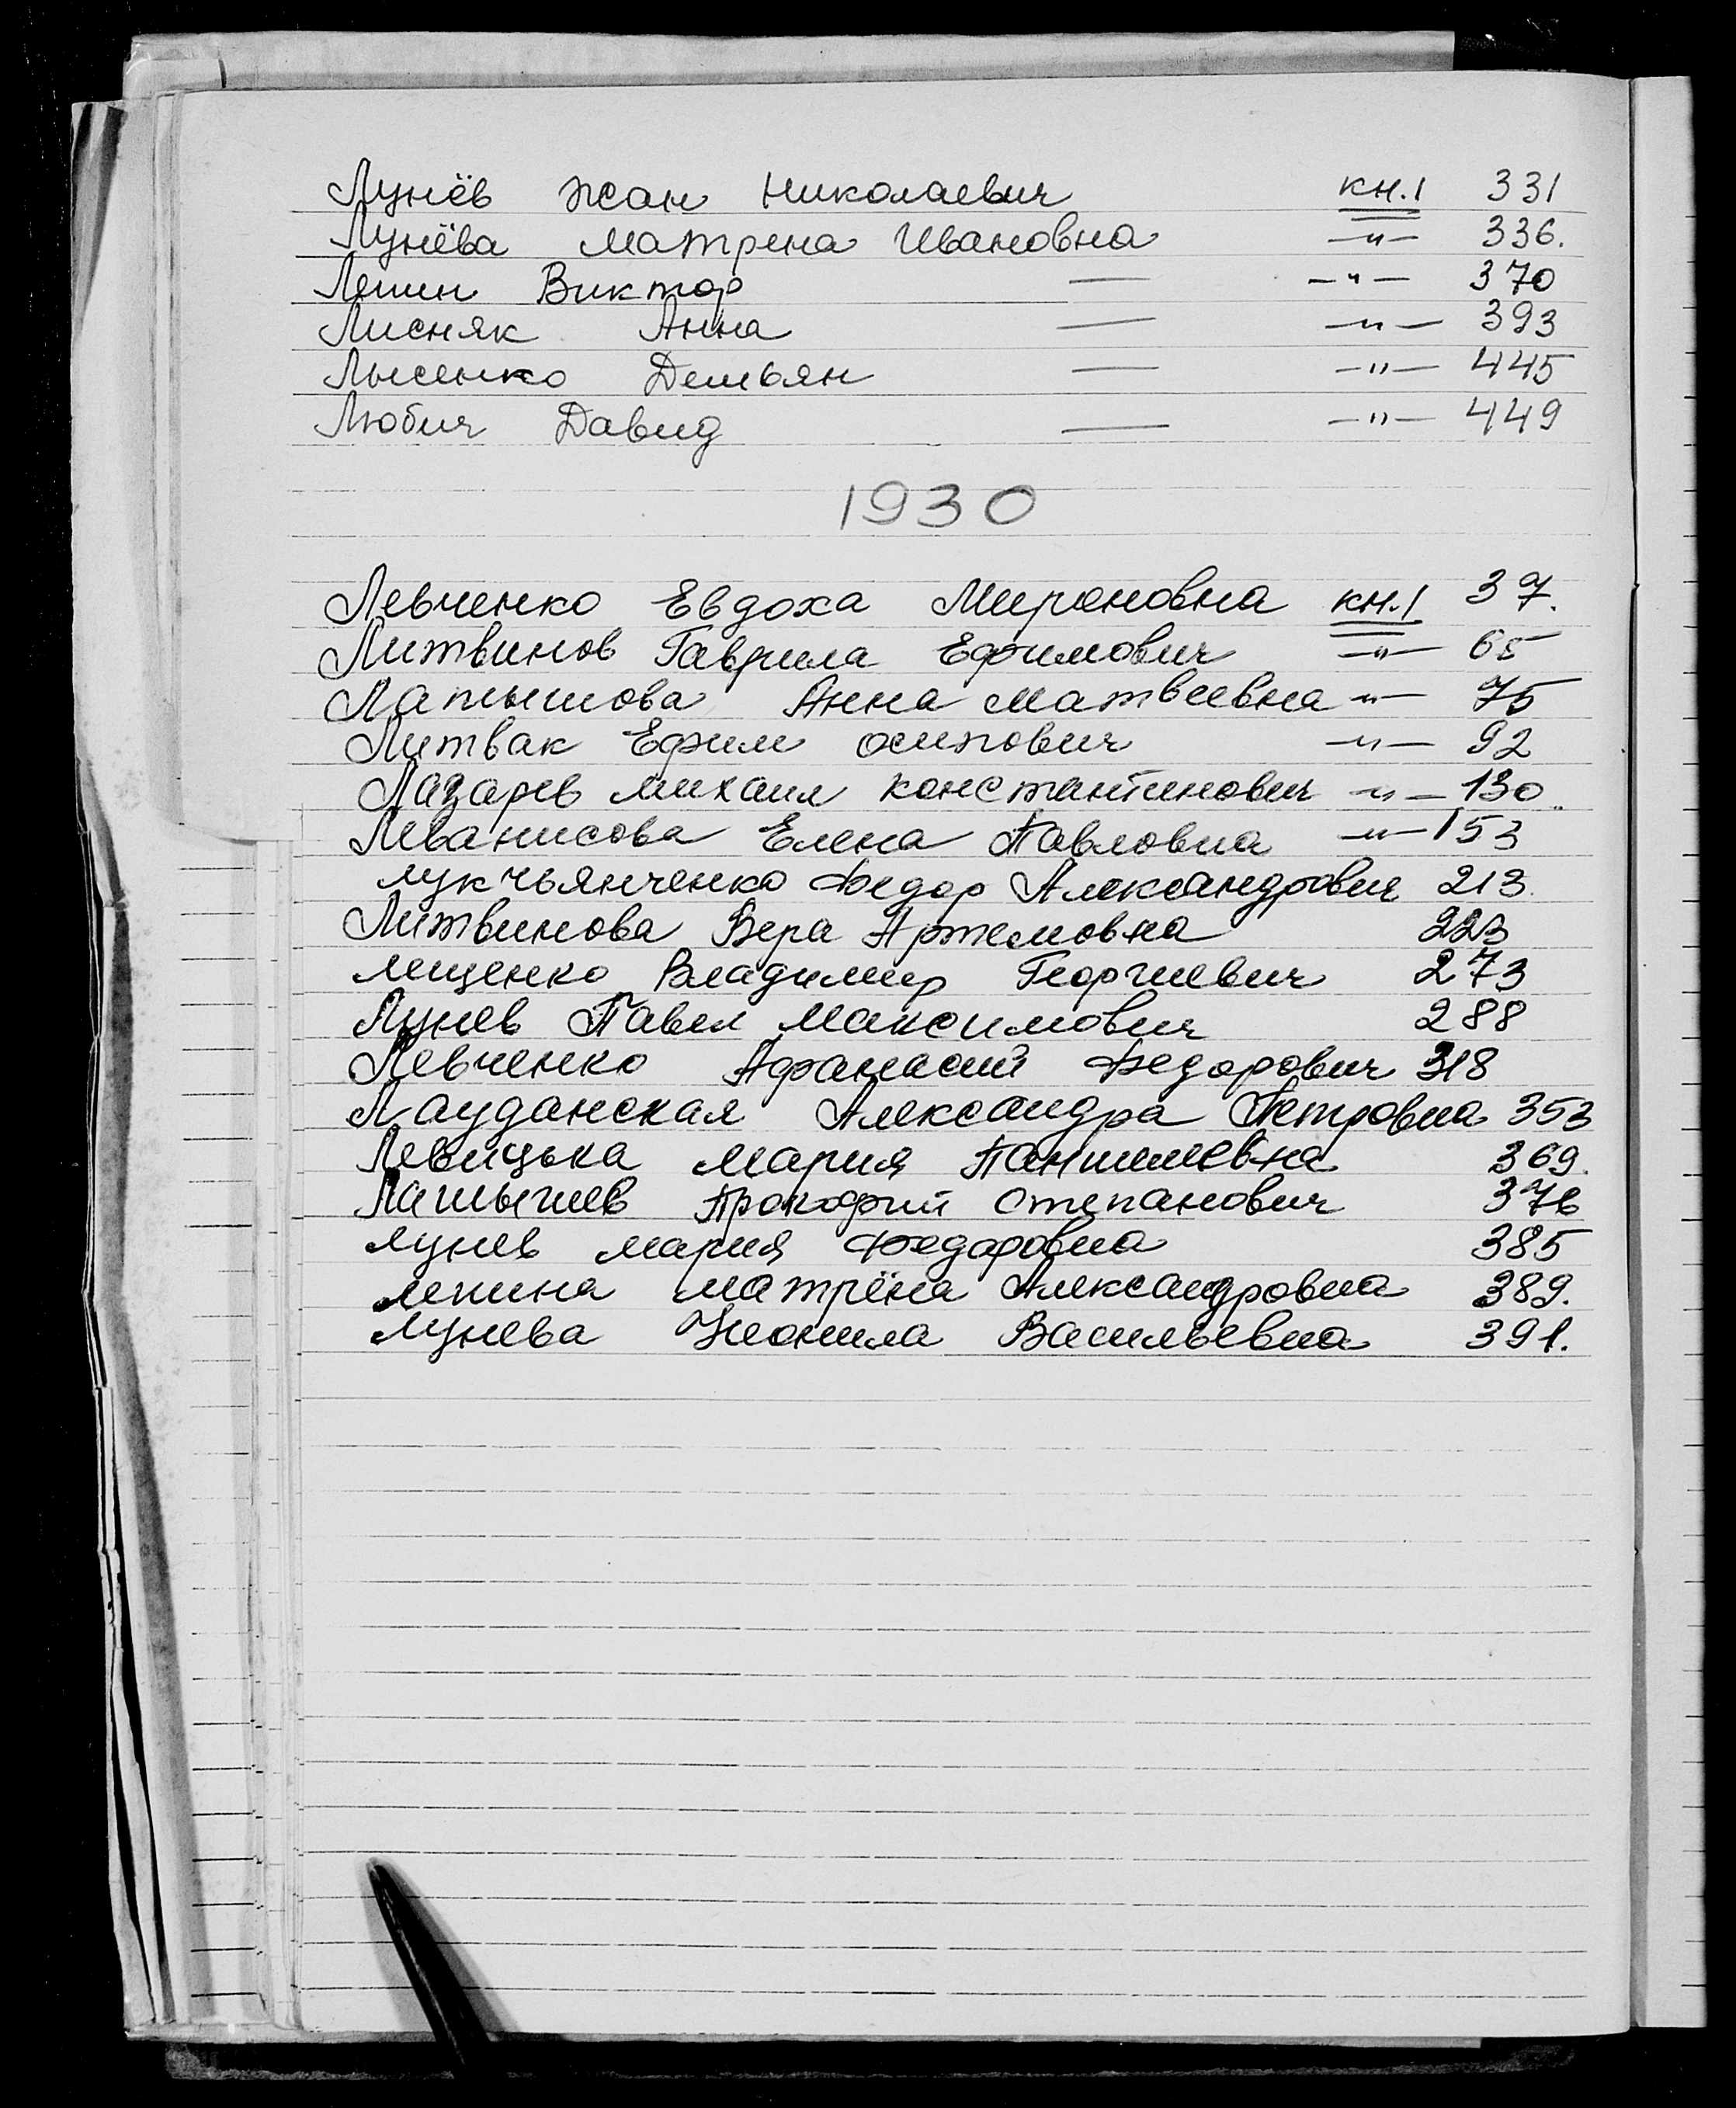 Лунёв Жан Николаевич кн.1 331
Лунёва Матрена Ивановна —"— 336.
Лепин Виктор — —"— 370
Лисняк Анна — —"— 393
Лысенко Демьян — —"— 445
Любич Давид — —"— 449
1930
Левченко Евдоха Мироновна кн.1 37.
Литвинов Гаврила Ефимович —"— 65
Латышова Анна Матвеевна —"— 75
Литвак Ефим Осипович —"— 92
Лазарев Михаил Константинович —"— 130
Леванисова Елена Павловна —"— 153
Лукчьянченко Федор Александрович 213.
Литвинова Вера Артемовна 223
Лещенко Владимир Георгиевич 273
Лунев Павел Максимович 288
Левченко Афанасий Федорович 318
Лауданская Александра Петровна 353
Левицька Мария 369.
Прокофий Степанович 376
Лунев Мария Федоровна 385
Лепина Матрёна Александровна 389.
Лунева Неонила Васильевна 391.